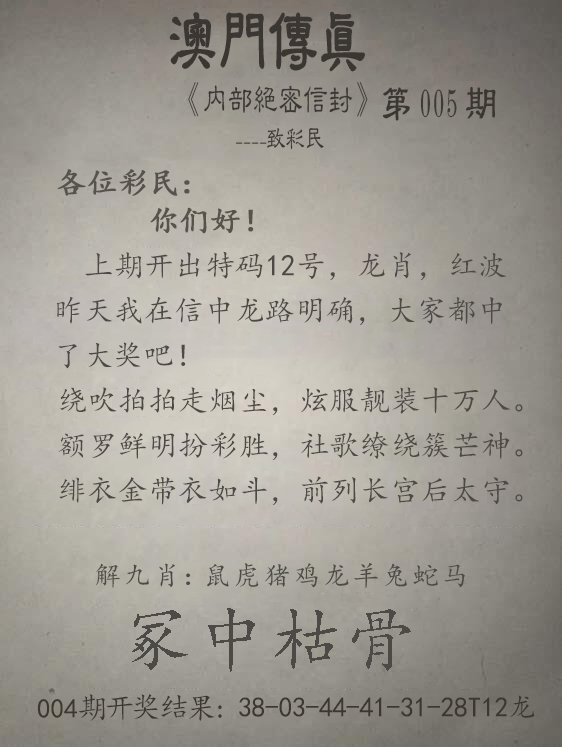 澳門傳眞
《内部絕密信封》第005期
----致彩民
各位彩民：
你们好！
上期开出特码12号，龙肖，红波
昨天我在信中龙路明确，大家都中
了大奖吧！
绕吹拍拍走烟尘，炫服靓装十万人。
额罗鲜明扮彩胜，社歌缭绕簇芒神。
绯衣金带衣如斗，前列长宫后太守。
解九肖：鼠虎猪鸡龙羊兔蛇马
冢中枯骨
004期开奖结果：38-03-44-41-31-28T12龙